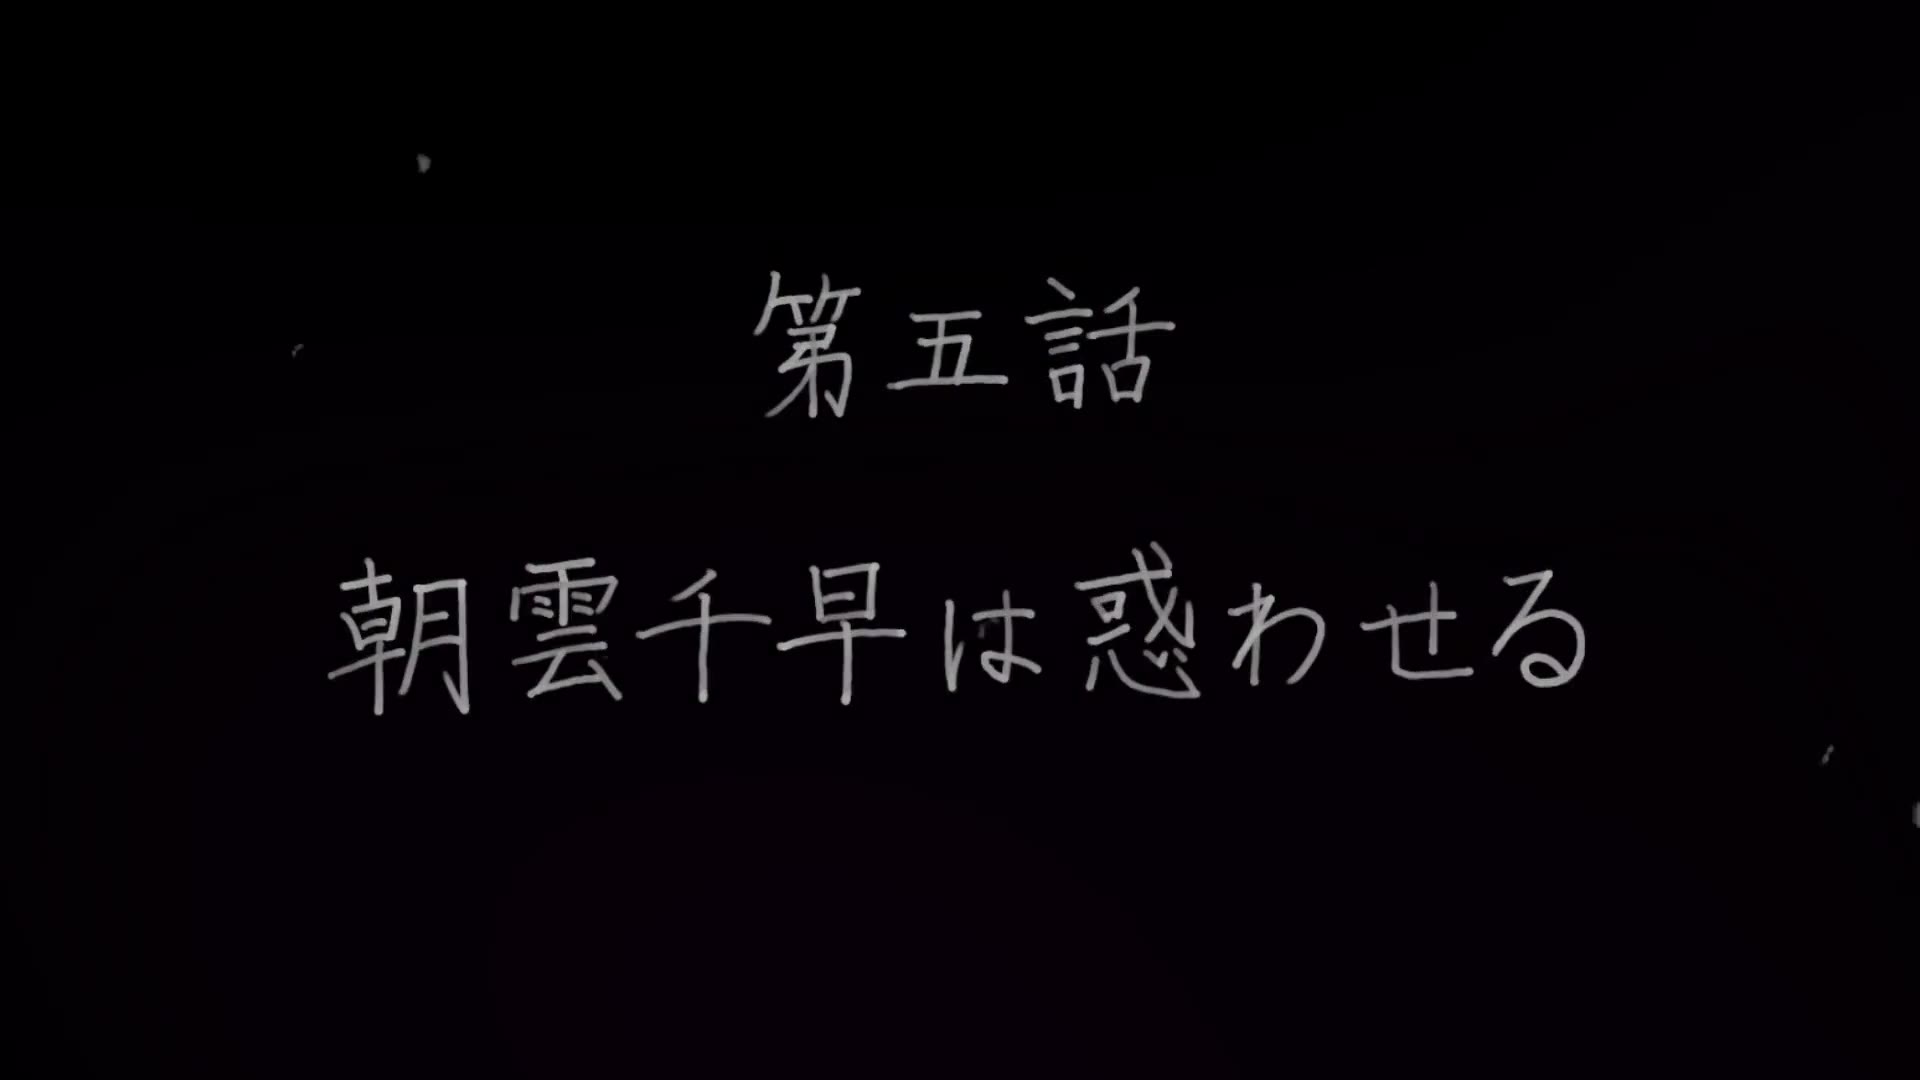 第五話
朝雲千早は惑わせる